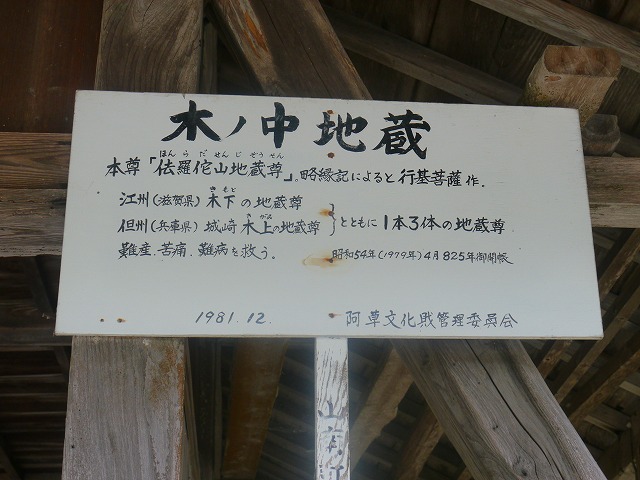 木ノ中地蔵
ほんらだせんじぞうそん
本尊「伩羅佗山地蔵尊」略縁記によると行基菩薩作.
きもと
江州(滋賀県)木下の地蔵尊
きがみ
但州(兵庫県)城崎木上の地蔵尊
}とともに1本3体の地蔵尊
難産.苦痛.難病を救う.
昭和54年(1979年)4月825年御開帳
1981.12.
阿草文化財管理委員会